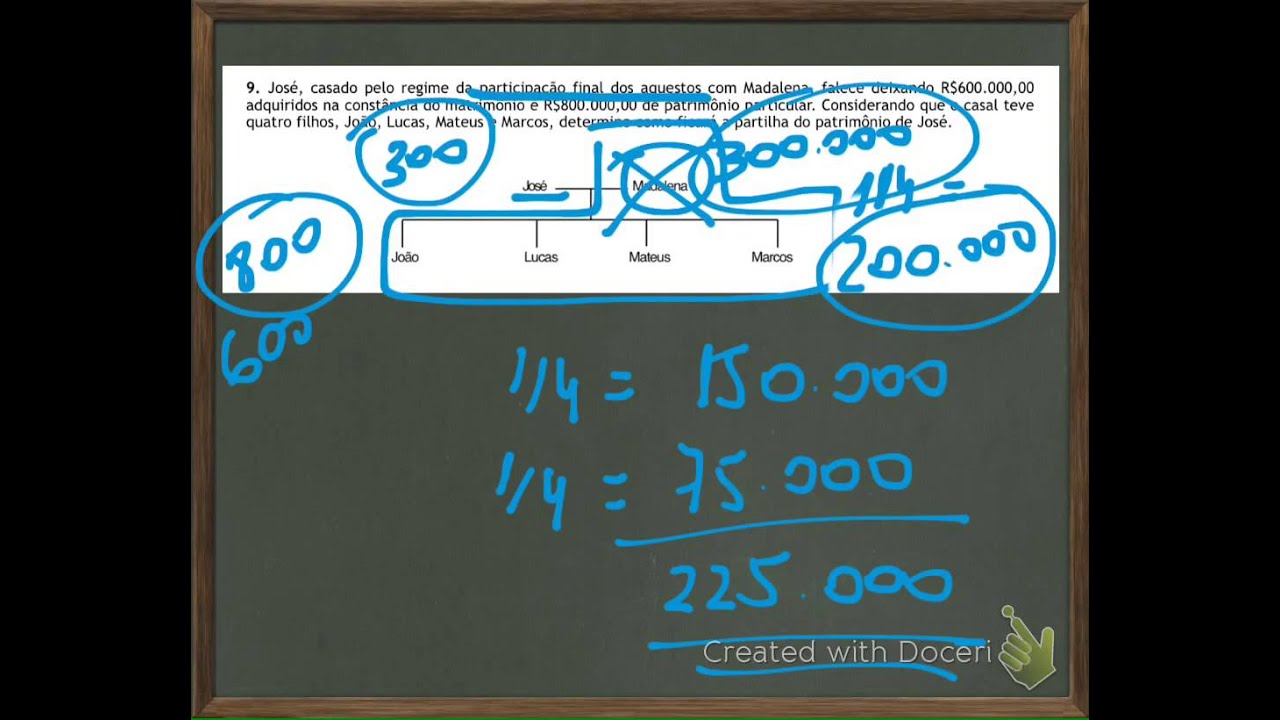 9. José, casado pelo regime da participação final dos aquestos com Madalena, falece deixando R$600.000,00
adquiridos na constância do matrimônio e R$800.000,00 de patrimônio particular. Considerando que o casal teve
quatro filhos, João, Lucas, Mateus e Marcos, determine como ficará a partilha do patrimônio de José.
300
300.000
José
Madalena
1/4 =
800
200.000
João
Lucas
Mateus
Marcos
600
1/4 = 150.000
1/4 = 75.000
225.000
Created with Doceri